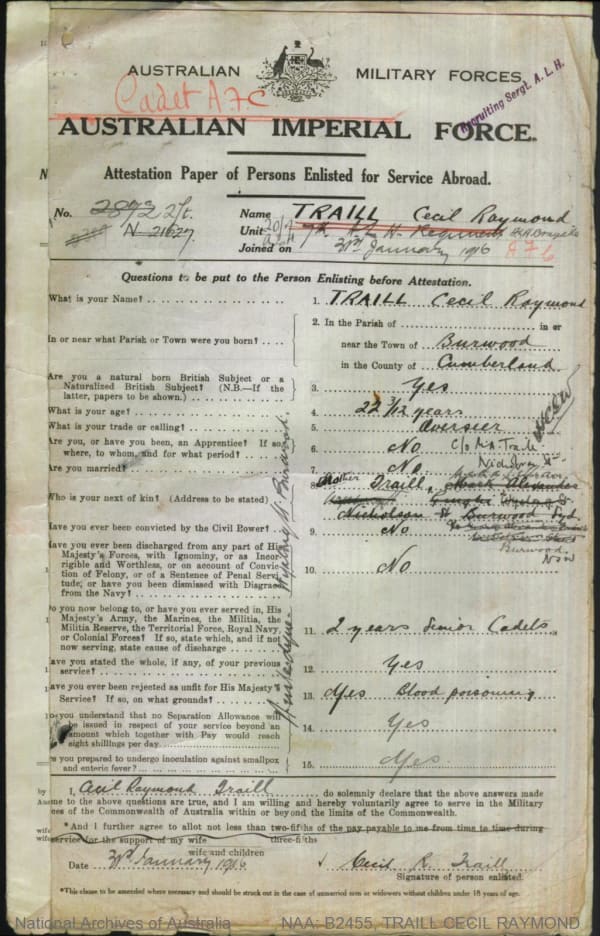 AUSTRALIAN MILITARY FORCES.
Recruiting Sergt. A. L. H.
Cadet A F C
AUSTRALIAN IMPERIAL FORCE.
Attestation Paper of Persons Enlisted for Service Abroad.
No. 2892 2/Lt. Name TRAILL Cecil Raymond
N 21627 Unit 7th A L H Regiment
Joined on 31st January 1916
Questions to be put to the Person Enlisting before Attestation.
What is your Name? 1. TRAILL Cecil Raymond
2. In the Parish of in or
In or near what Parish or Town were you born? near the Town of Burwood
in the County of Cumberland
Are you a natural born British Subject or a
Naturalized British Subject? (N.B.—If the
latter, papers to be shown.) 3. Yes
What is your age? 4. 22 3/12 years
What is your trade or calling? 5. Overseer
Are you, or have you been, an Apprentice? If so,
where, to whom, and for what period? 6. No
Are you married? 7. No
8. Mother Traill
Who is your next of kin? (Address to be stated)
Nicholson St Burwood Syd.
Have you ever been convicted by the Civil Power? 9. No
Burwood
NSW
Have you ever been discharged from any part of His
Majesty's Forces, with Ignominy, or as Incor-
rigible and Worthless, or on account of Convic-
tion of Felony, or of a Sentence of Penal Servi-
tude, or have you been dismissed with Disgrace
from the Navy? 10. No
Do you now belong to, or have you ever served in, His
Majesty's Army, the Marines, the Militia, the
Militia Reserve, the Territorial Force, Royal Navy,
or Colonial Forces? If so, state which, and if not
now serving, state cause of discharge 11. 2 years Senior Cadets
Have you stated the whole, if any, of your previous
service? 12. Yes
Have you ever been rejected as unfit for His Majesty's
Service? If so, on what grounds? 13. Yes Blood poisoning
Do you understand that no Separation Allowance will
be issued in respect of your service beyond an
amount which together with Pay would reach
eight shillings per day 14. Yes
Are you prepared to undergo inoculation against smallpox
and enteric fever? 15. Yes
I, Cecil Raymond Traill do solemnly declare that the above answers made
by me to the above questions are true, and I am willing and hereby voluntarily agree to serve in the Military
Forces of the Commonwealth of Australia within or beyond the limits of the Commonwealth.
*And I further agree to allot not less than two-fifths of the pay payable to me from time to time during
three-fifths
service for the support of my wife
wife and children
Date 31st January 1916 Cecil R. Traill
Signature of person enlisted.
*This clause to be amended where necessary and should be struck out in the case of unmarried men or widowers without children under 18 years of age.
National Archives of Australia NAA: B2455, TRAILL CECIL RAYMOND